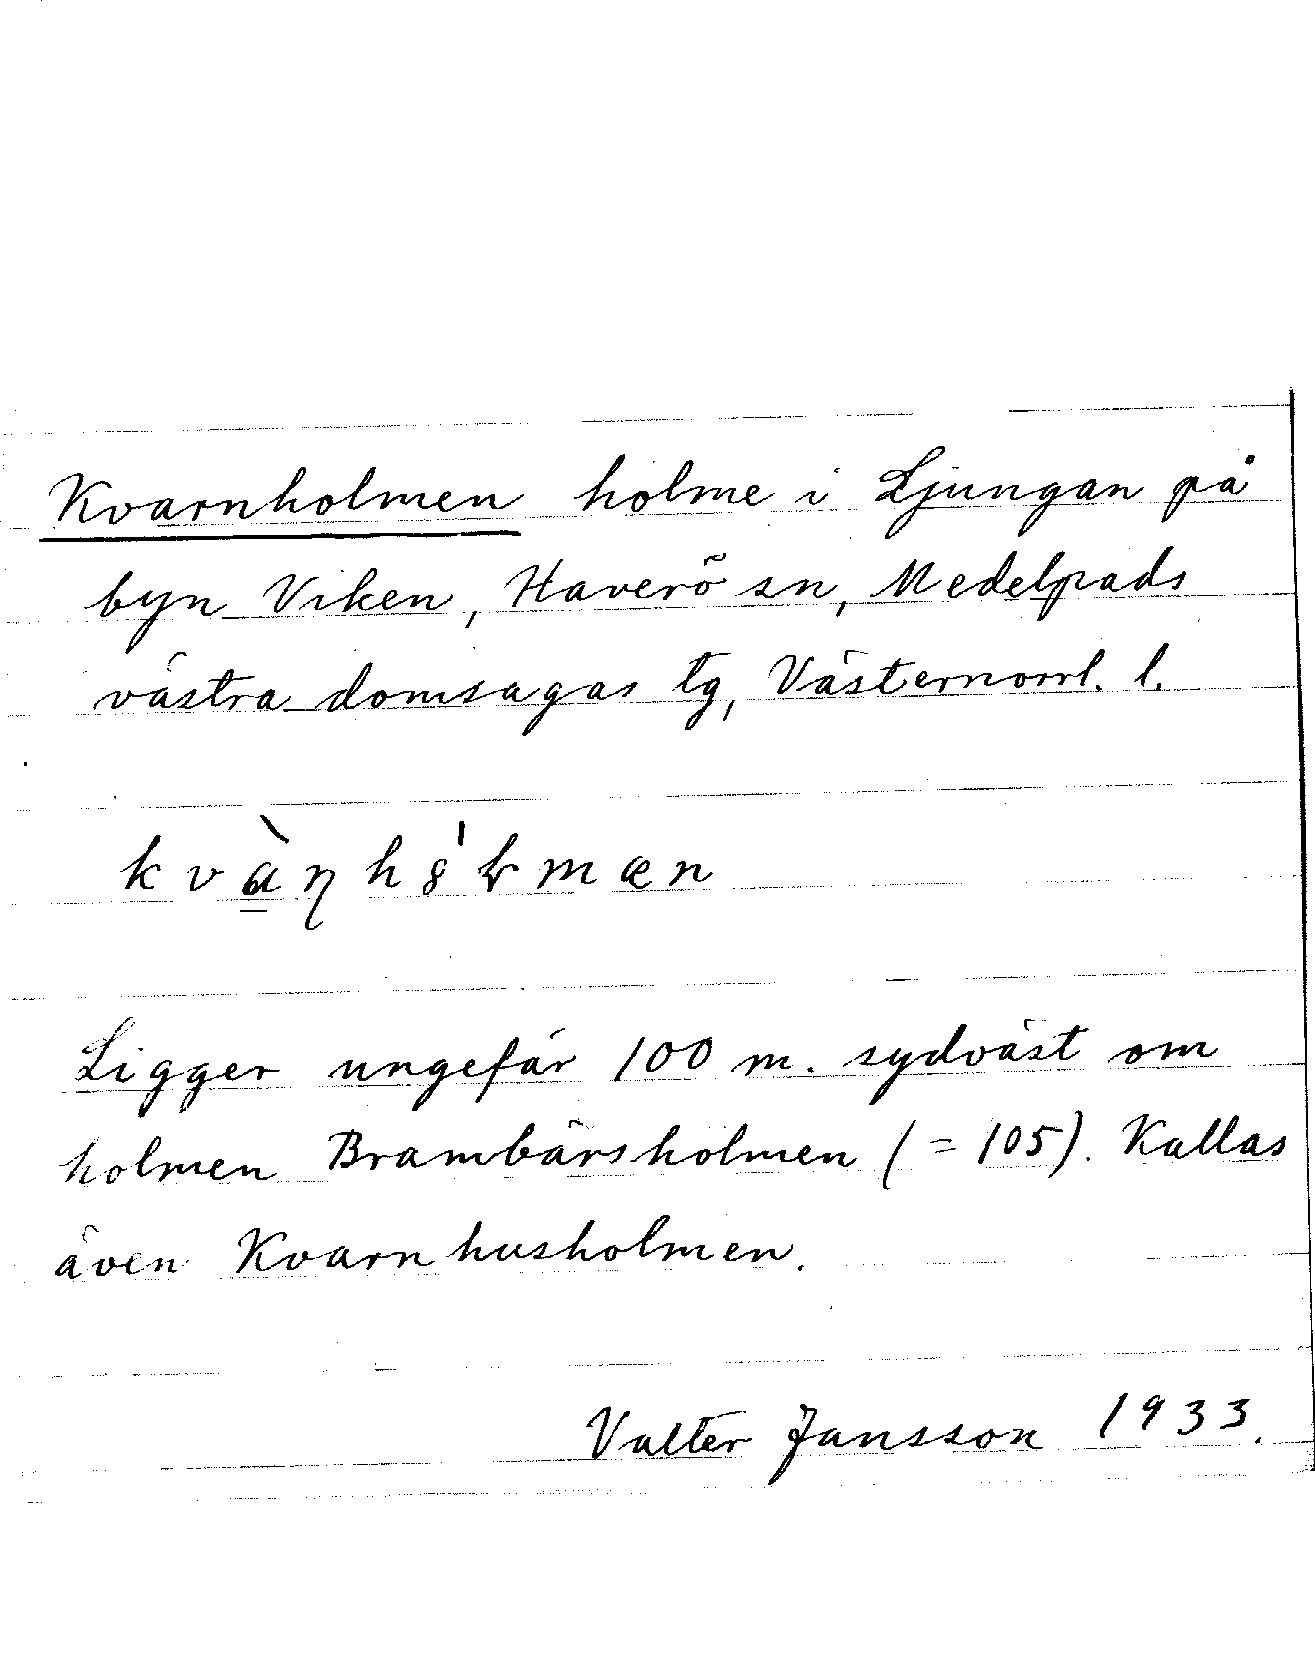 Kvarnholmen holme i Ljungan på
byn Viken, Haverö sn, Medelpads
västra domsagas tg, Västernorrl. l.
Ligger ungefär 100 m. sydväst om
holmen Brambärsholmen (= 105). Kallas
även Kvarnhusholmen.
Valter Jansson 1933.